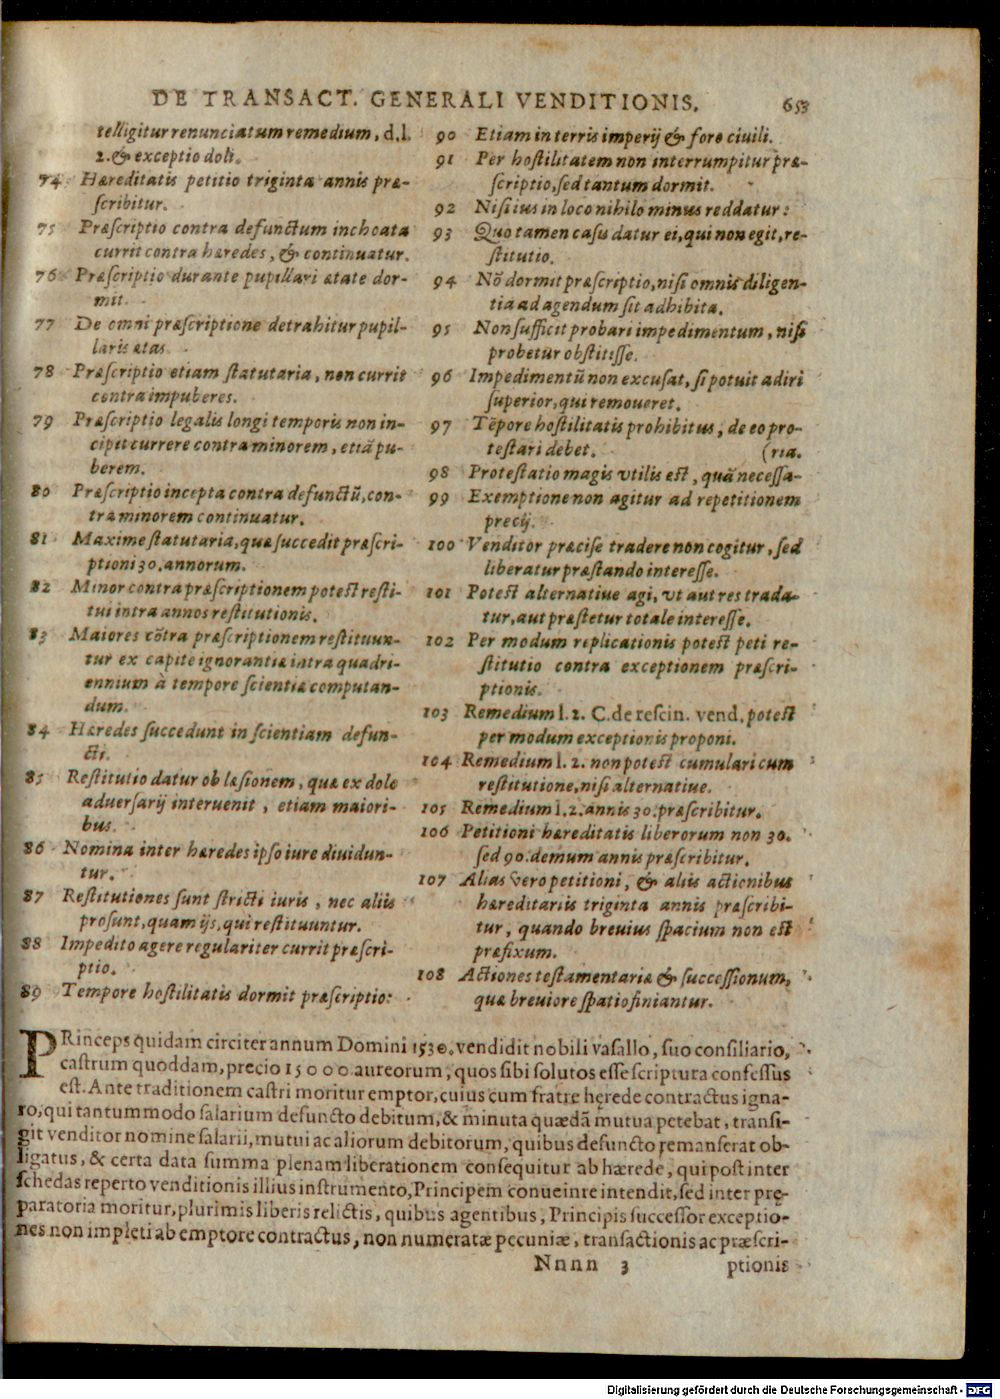 DE TRANSACT. GENERALI VENDITIONIS. 653
telligitur renunciatum remedium, d.l.
2. & exceptio doli.
74 Hæreditatis petitio triginta annis præ-
scribitur.
75 Præscriptio contra defunctum inchoata
currit contra hæredes, & continuatur.
76 Præscriptio durante pupillari ætate dor-
mit.
77 De omni præscriptione detrahitur pupil-
laris ætas.
78 Præscriptio etiam statutaria, non currit
contra impuberes.
79 Præscriptio legalis longi temporis non in-
cipit currere contra minorem, etiā pu-
berem.
80 Præscriptio incepta contra defunctū, con-
tra minorem continuatur.
81 Maxime statutaria, quæ succedit præscri-
ptioni 30. annorum.
82 Minor contra præscriptionem potest resti-
tui intra annos restitutionis.
83 Maiores cōtra præscriptionem restituun-
tur ex capite ignorantiæ intra quadri-
ennium à tempore scientiæ computan-
dum.
84 Hæredes succedunt in scientiam defun-
cti.
85 Restitutio datur ob læsionem, quæ ex dolo
aduersarij interuenit, etiam maiori-
bus.
86 Nomina inter hæredes ipso iure diuidun-
tur.
87 Restitutiones sunt stricti iuris, nec aliis
prosunt, quam ijs, qui restituuntur.
88 Impedito agere regulariter currit præscri-
ptio.
89 Tempore hostilitatis dormit præscriptio:
90 Etiam in terris imperij & foro ciuili.
91 Per hostilitatem non interrumpitur præ-
scriptio, sed tantum dormit.
92 Nisi ius in loco nihilo minus reddatur:
93 Quo tamen casu datur ei, qui non egit, re-
stitutio.
94 Nō dormit præscriptio, nisi omnis diligen-
tia ad agendum sit adhibita.
95 Non sufficit probari impedimentum, nisi
probetur obstitisse.
96 Impedimentū non excusat, si potuit adiri
superior, qui remoueret.
97 Tēpore hostilitatis prohibitus, de eo pro-
testari debet. (ria.
98 Protestatio magis vtilis est, quā necessa-
99 Ex emptione non agitur ad repetitionem
precij.
100 Venditor præcise tradere non cogitur, sed
liberatur præstando interesse.
101 Potest alternatiue agi, vt aut res trada-
tur, aut præstetur totale interesse.
102 Per modum replicationis potest peti re-
stitutio contra exceptionem præscri-
ptionis.
103 Remedium l. 2. C. de rescin. vend. potest
per modum exceptionis proponi.
104 Remedium l. 2. non potest cumulari cum
restitutione, nisi alternatiue.
105 Remedium l. 2. annis 30. præscribitur.
106 Petitioni hæreditatis liberorum non 30.
sed 90. demum annis præscribitur.
107 Alias vero petitioni, & aliis actionibus
hæreditariis triginta annis præscribi-
tur, quando breuius spacium non est
præfixum.
108 Actiones testamentariæ & successionum,
quæ breuiore spatio finiantur.
PRinceps quidam circiter annum Domini 1530. vendidit nobili vasallo, suo consiliario,
castrum quoddam, precio 15000. aureorum, quos sibi solutos esse scriptura confessus
est. Ante traditionem castri moritur emptor, cuius cum fratre hęrede contractus igna-
ro, qui tantummodo salarium defuncto debitum, & minuta quædā mutua petebat, transi-
git venditor nomine salarii, mutui ac aliorum debitorum, quibus defuncto remanserat ob-
ligatus, & certa data summa plenam liberationem consequitur ab hærede, qui post inter
schedas reperto venditionis illius instrumento, Principem conueinre intendit, sed inter prę-
paratoria moritur, plurimis liberis relictis, quibus agentibus, Principis successor exceptio-
nes non impleti ab emptore contractus, non numeratæ pecuniæ, transactionis ac præscri-
Nnnn 3 ptionis
Digitalisierung gefördert durch die Deutsche Forschungsgemeinschaft - DFG